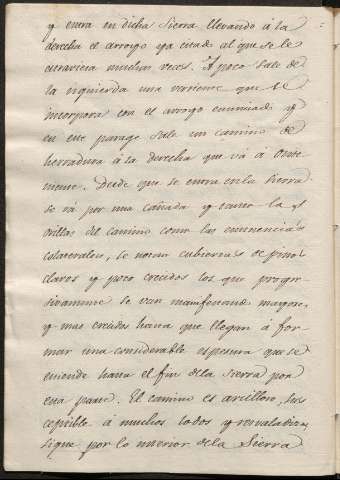 y entra en dicha Sierra llevando á la
derecha el arroyo ya citado al que se le
atraviesa muchas veces. A poco sale de
la izquierda una vertiente que se
incorpora con el arroyo enunciado y
en este parage sale un camino de
herradura á la derecha que vá á Onte
niente. Desde que se entra en la Sierra
se vá por una cañada y tanto las
orillas del camino como las eminencias
colaterales, se notan cubiertas de pinos
claros y poco crecidos los que progre
sivamente se van manifestando mayores
y mas crecidos hasta que llegan á for
mar una considerable espesura que se
estiende hasta el fin de la Sierra por
esta parte. El camino es arcilloso, sus
ceptible á muchos lodos y resvaladizo
sigue por lo interior de la Sierra